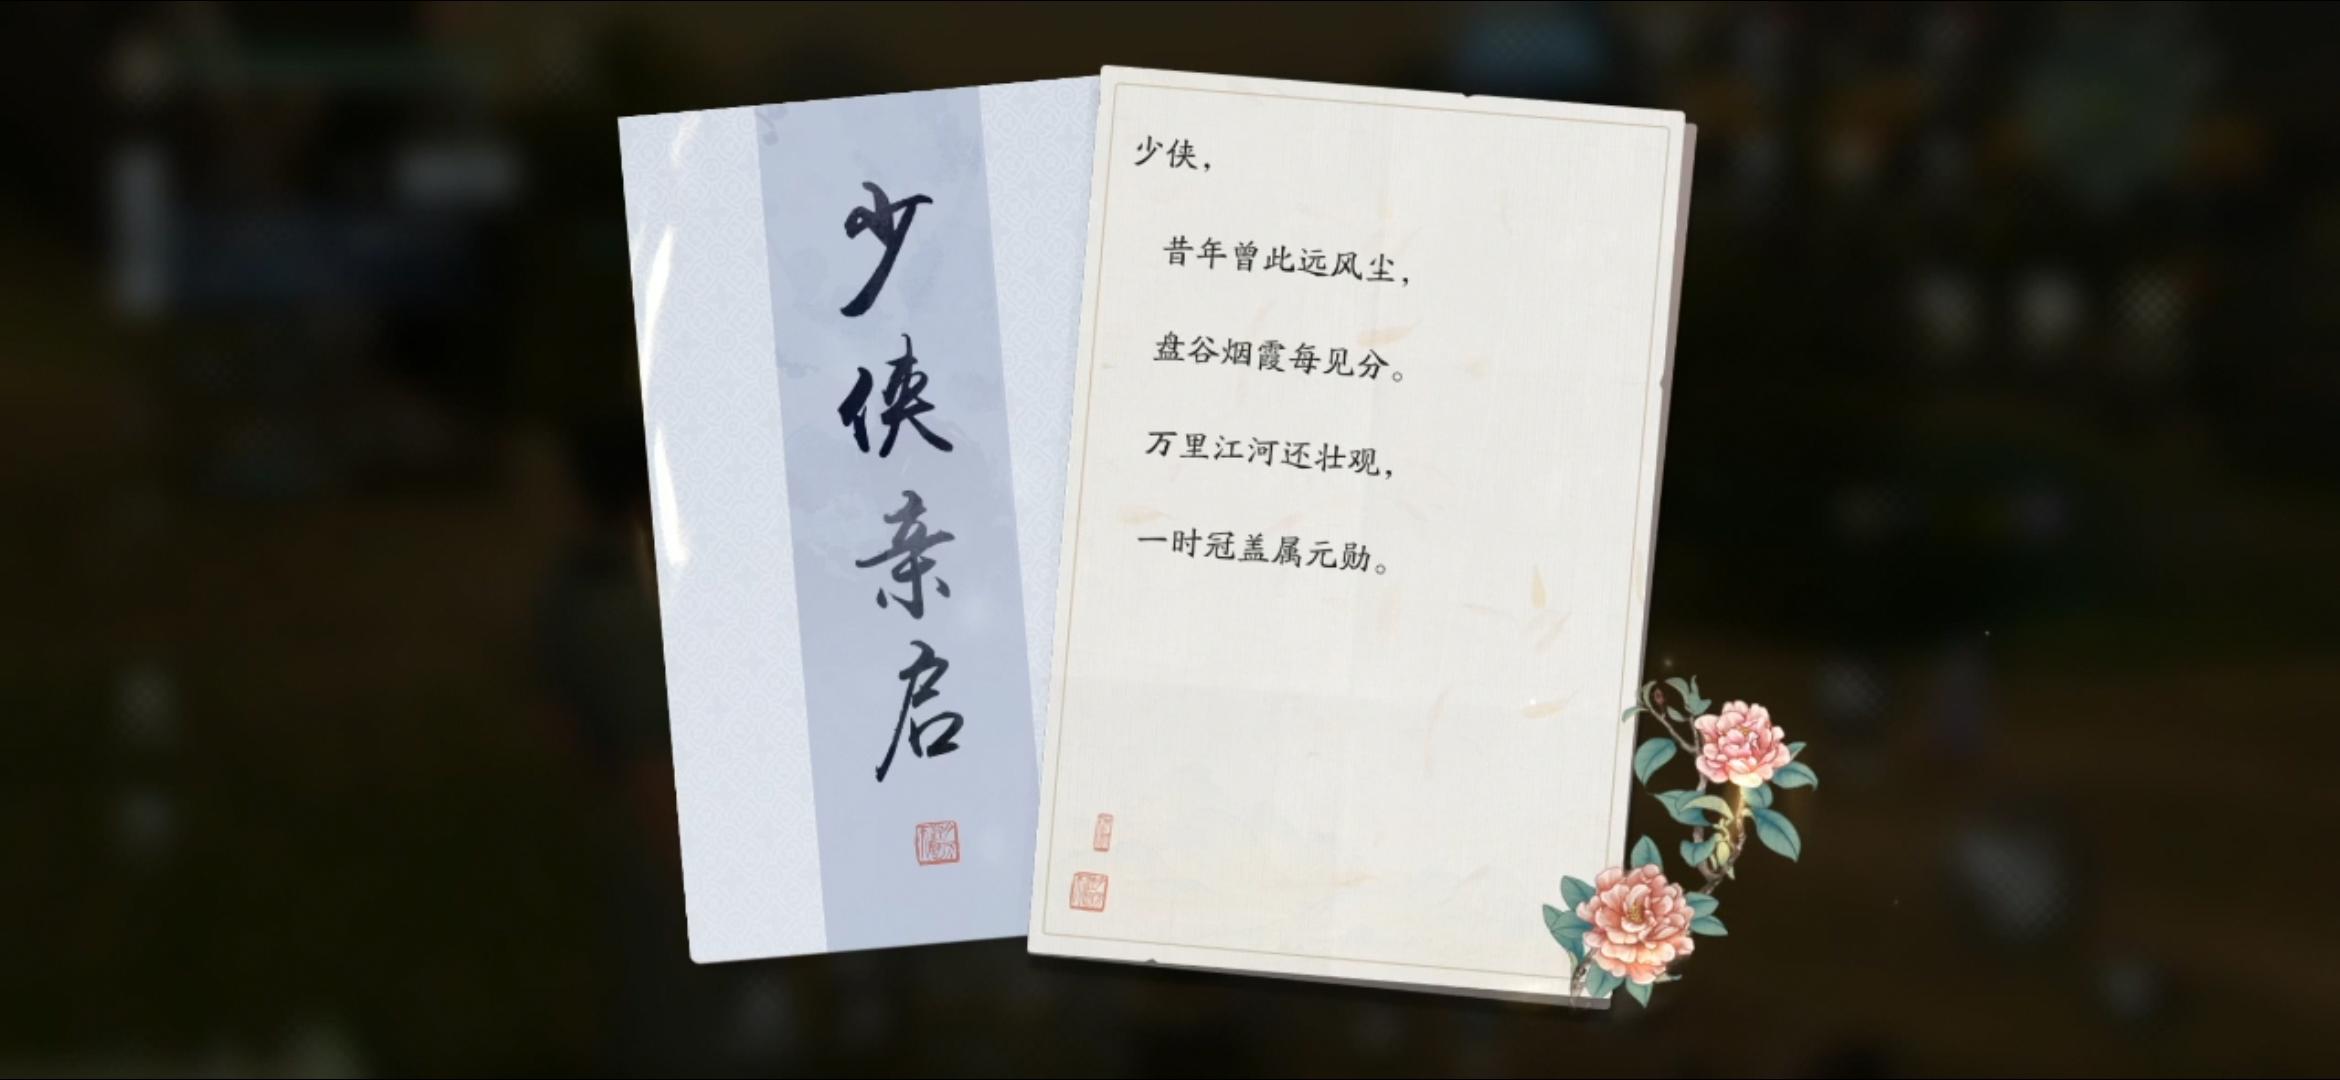 少侠亲启
少侠，
昔年曾此远风尘，
盘谷烟霞每见分。
万里江河还壮观，
一时冠盖属元勋。